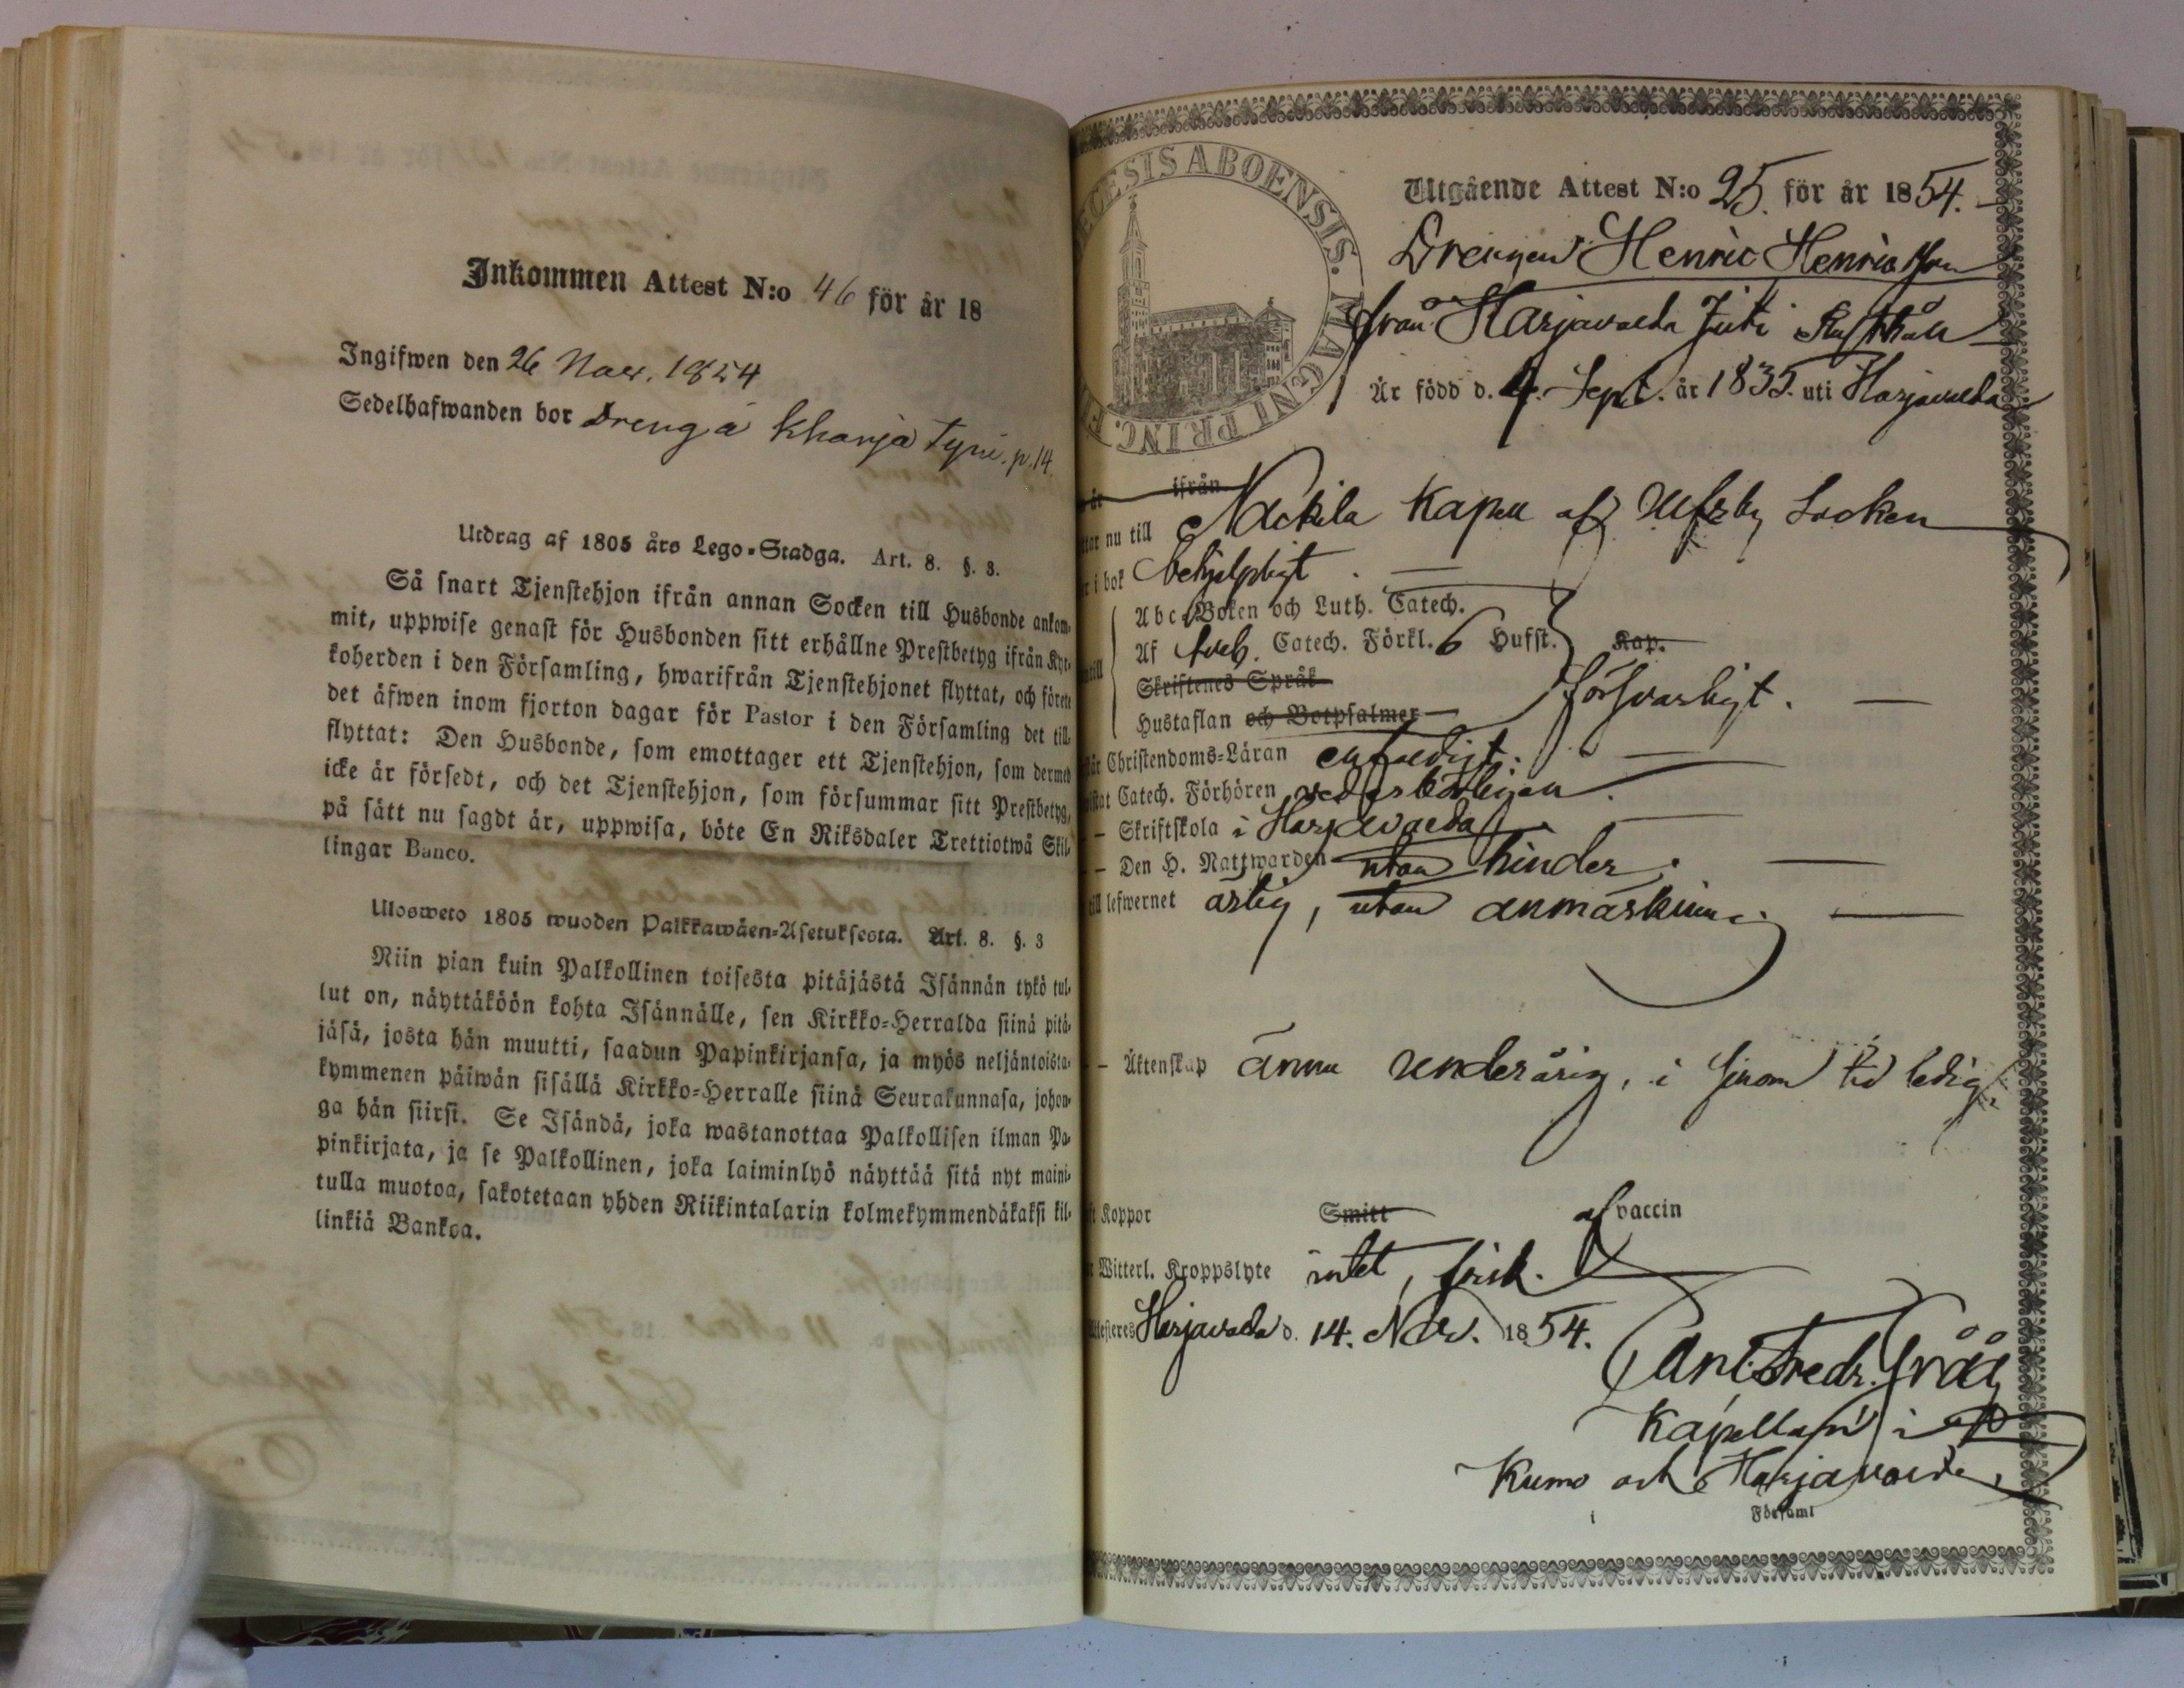 Inkommen Attest N:o 46 för år 18
Ingifwen den 26 Nov. 1854
Sedelhafwanden bor Dreng å Kharja Tyni. p. 14.
Utdrag af 1805 års Lego-Stadga. Art. 8. §. 3.
Så snart Tjenstehjon ifrån annan Socken till Husbonde ankom-
mit, uppwise genast för Husbonden sitt erhållne Prestbetyg ifrån Kyr-
koherden i den Församling, hwarifrån Tjenstehjonet flyttat, och förete
det äfwen inom fjorton dagar för Pastor i den Församling det till-
flyttat: Den Husbonde, som emottager ett Tjenstehjon, som dermed
icke är försedt, och det Tjenstehjon, som försummar sitt Prestbetyg,
på sätt nu sagdt är, uppwisa, böte En Riksdaler Trettiotwå Skil-
lingar Banco.
Ulosweto 1805 wuoden Palkkawäen-Asetuksesta. Art. 8. §. 3
Niin pian kuin Palkollinen toisesta pitäjästä Isännän tykö tul-
lut on, näyttäköön kohta Isännälle, sen Kirkko-Herralda siinä pitä-
jäsä, josta hän muutti, saadun Papinkirjansa, ja myös neljäntoista-
kymmenen päiwän sisällä Kirkko-Herralle siinä Seurakunnasa, johon-
ga hän siirsi. Se Isändä, joka wastanottaa Palkollisen ilman Pa-
pinkirjata, ja se Palkollinen, joka laiminlyö näyttää sitä nyt maini-
tulla muotoa, sakotetaan yhden Riikintalarin kolmekymmendäkaksi kil-
linkiä Bankoa.
ECESIS ABOENSIS. MAGNI PRINC. F
Utgående Attest N:o 25. för år 1854.
Drengen Henric Henricsson
från Harjavalda Juti Rusthåll
Är född d. 4. Sept. år 1835. uti Harjavalda
ifrån
nu till Nackila Kapell af Ulfsby Socken
i bok behjelpligt.
Abc-Boken och Luth. Catech.
Af Sveb. Catech. Förkl. 6 Hufst. Kap.
Skriftenes Språk
försvarligt.
Hustaflan och Botpsalmer
Christendoms-Läran enfaldigt.
Catech. Förhören vederbörligen.
– Skriftskola i Harjavalda
– Den H. Nattwarden utan hinder.
lefwernet ärlig, utan anmärkning.
– Äktenskap ännu underårig, i sinom tid ledig.
Koppor Smitt af vaccin
Witterl. Kroppslyte intet, frisk.
Harjavalda d. 14. Nov. 1854.
Carl Fredr. Gråå
Kapellan i
Kumo och Harjavalda
i Församl